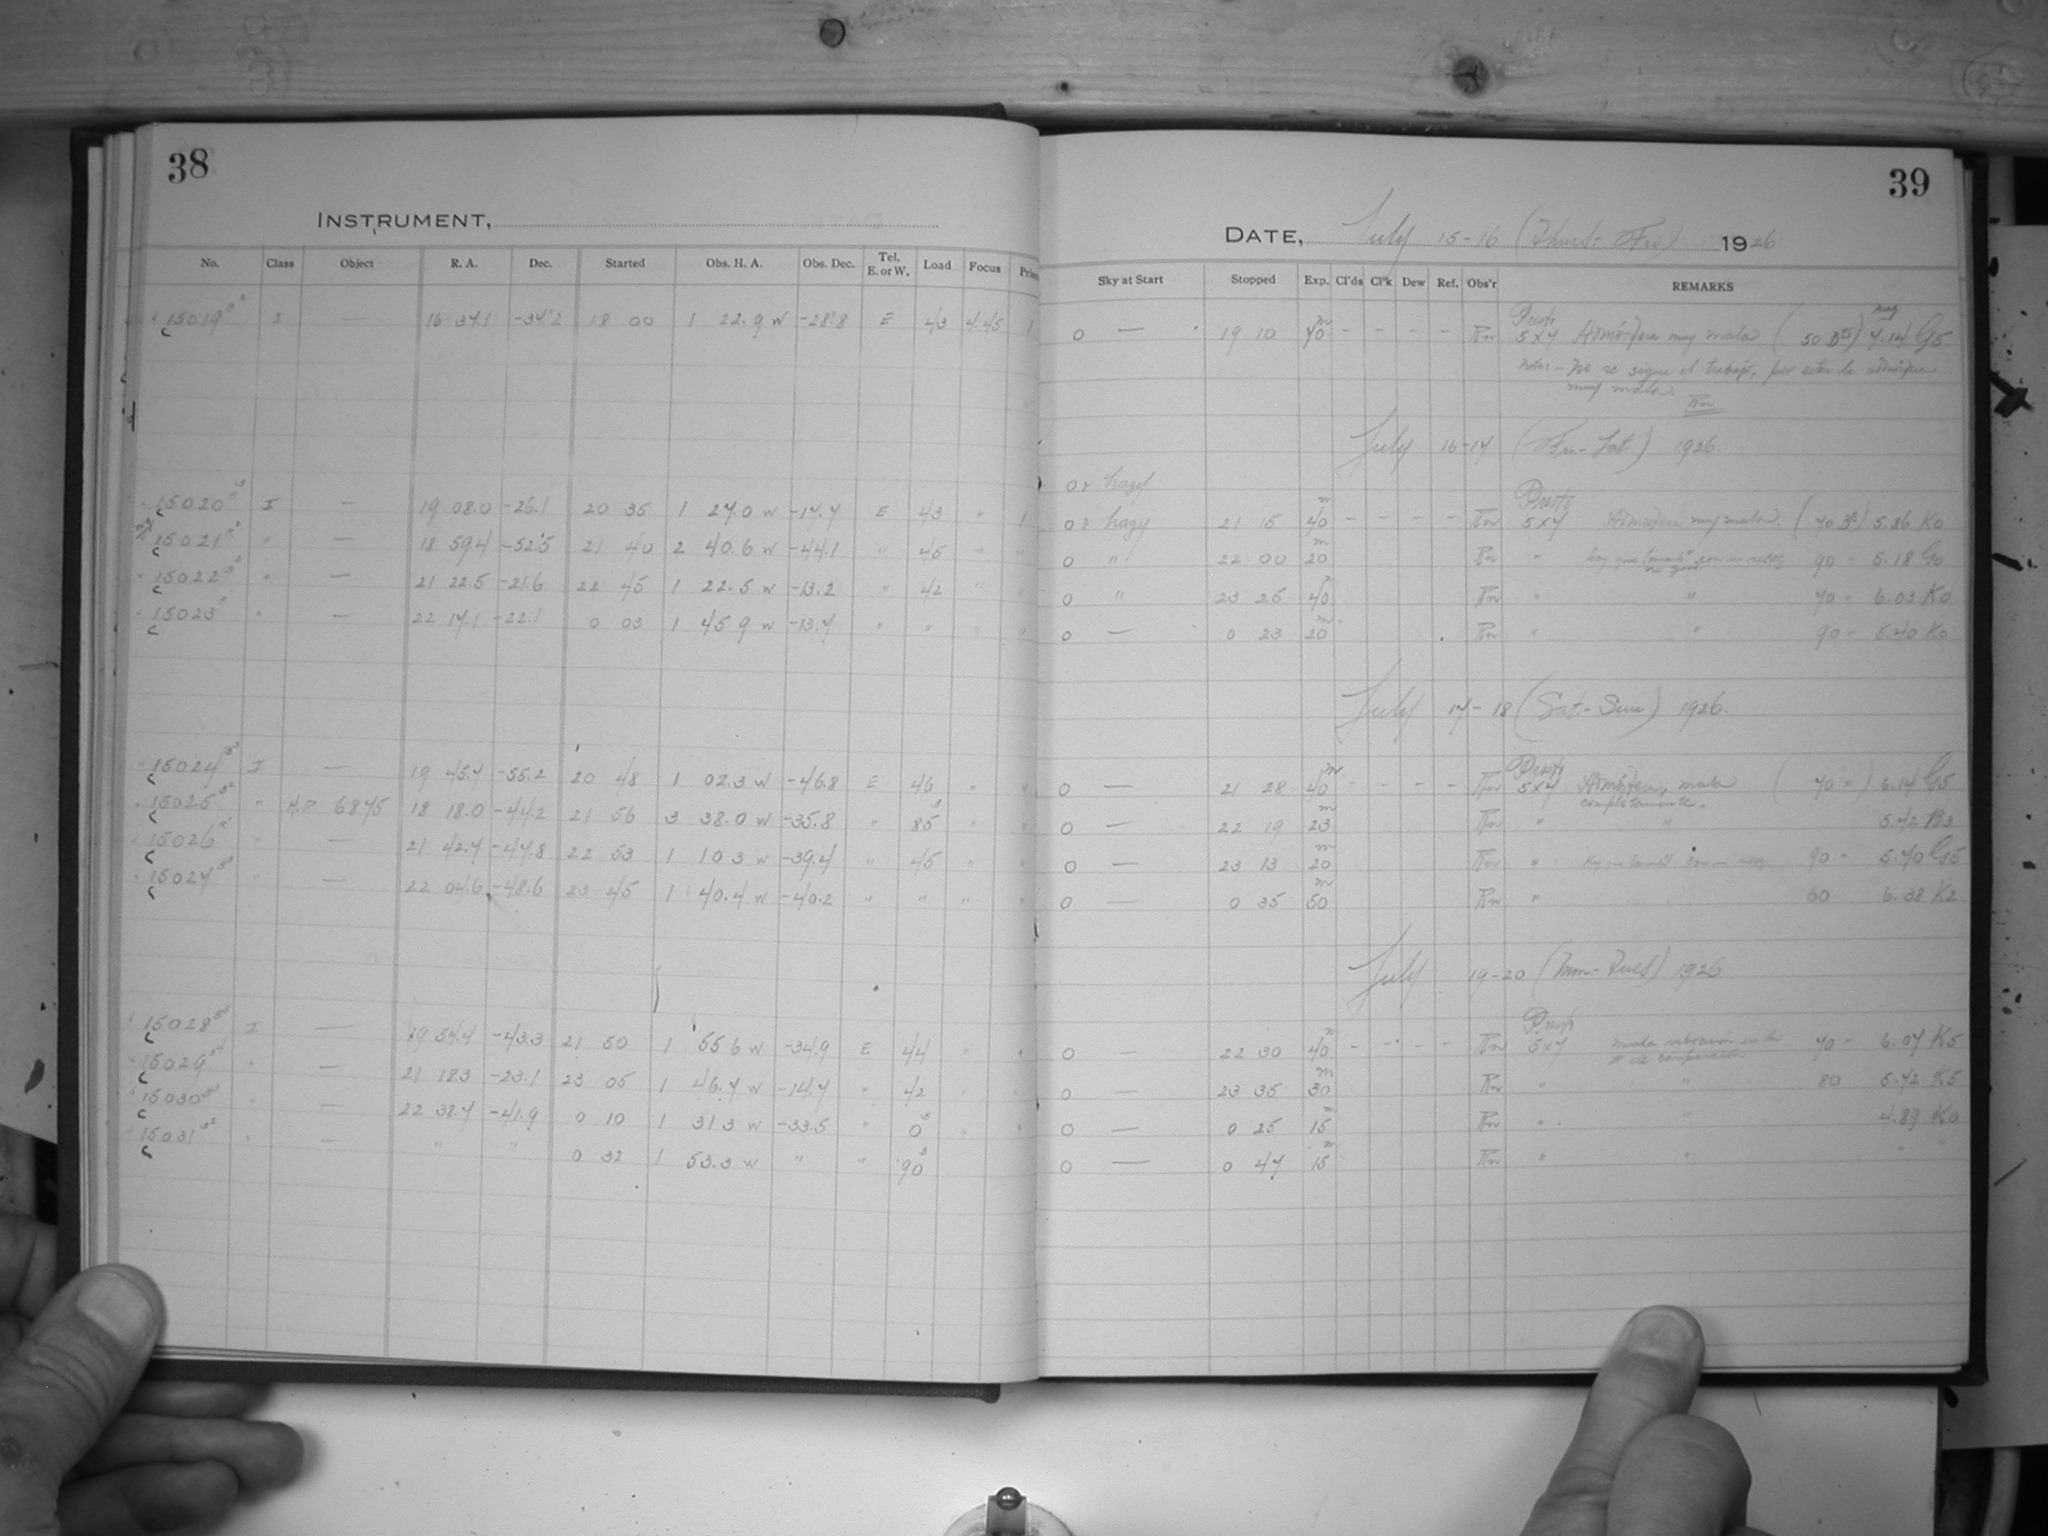 38
INSTRUMENT,
No. Class Object R. A. Dec. Started Obs. H. A. Obs. Dec. Tel. E. or W. Load Focus
15019 I — 16 37.1 -34.2 18 00 1 22.9 W -28.8 E 43 4.45 1
15020 I — 19 08.0 -26.1 20 35 1 27.0 W -17.7 E 43 " 1
15021 " — 18 59.4 -52.5 21 40 2 40.6 W -44.1 " 45 " "
15022 " — 21 22.5 -21.6 22 45 1 22.5 W -13.2 " 42 " "
15023 " — 22 17.1 -22.1 0 03 1 45.9 W -13.7 " " " "
15024 I — 19 45.7 -55.2 20 48 1 02.3 W -46.8 E 46 " "
15025 " H.R. 6875 18 18.0 -44.2 21 56 3 38.0 W -35.8 " 85 " "
15026 " — 21 42.7 -47.8 22 53 1 10.3 W -39.4 " 45 " "
15027 " — 22 04.6 -48.6 23 45 1 40.4 W -40.2 " " " "
15028 I — 19 54.4 -43.3 21 50 1 55.6 W -34.9 E 44 " "
15029 " — 21 18.3 -23.1 23 05 1 46.7 W -14.7 " 42 " "
15030 " — 22 38.7 -41.9 0 10 1 31.3 W -33.5 " 0 " "
15031 " — " " 0 32 1 53.3 W " " 90
39
DATE, July 15-16 (Thurs-Fri) 1926
Sky at Start Stopped Exp. Cl'ds Cl'k Dew Ref. Obs'r REMARKS
0 — 19 10 70m - - - - 5x7 Atmósfera muy mala (50 ) 7.14 G5
Nota:- No se sigue el trabajo, por estar la atmósfera
muy mala.
July 16-17 (Fri-Sat) 1926.
0 & hazy
0 & hazy 21 15 40m - - - - 5x7 Atmósfera muy mala. (70 ) 5.86 K0
0 " 22 00 20m " 90 " 5.18 G0
0 " 23 25 40m " " 70 " 6.03 K0
0 — 0 23 20m " " 90 " 5.40 K0
July 17-18 (Sat-Sun) 1926.
0 — 21 28 40m - - - - 5x7 Atmósfera, mala (70 " ) 6.14 G5
completamente.
0 — 22 19 23m " " 5.42 B3
0 — 23 13 20m " 90 " 5.70 G5
0 — 0 35 50m " 60 6.38 K2
July 19-20 (Mon-Tues) 1926
0 — 22 30 40m - - - - 5x7 mucha vibración en la 70 " 6.07 K5
* de comparación
0 — 23 35 30m " " 80 5.42 K5
0 — 0 25 15m " " 4.89 K0
0 — 0 47 15m " " " "